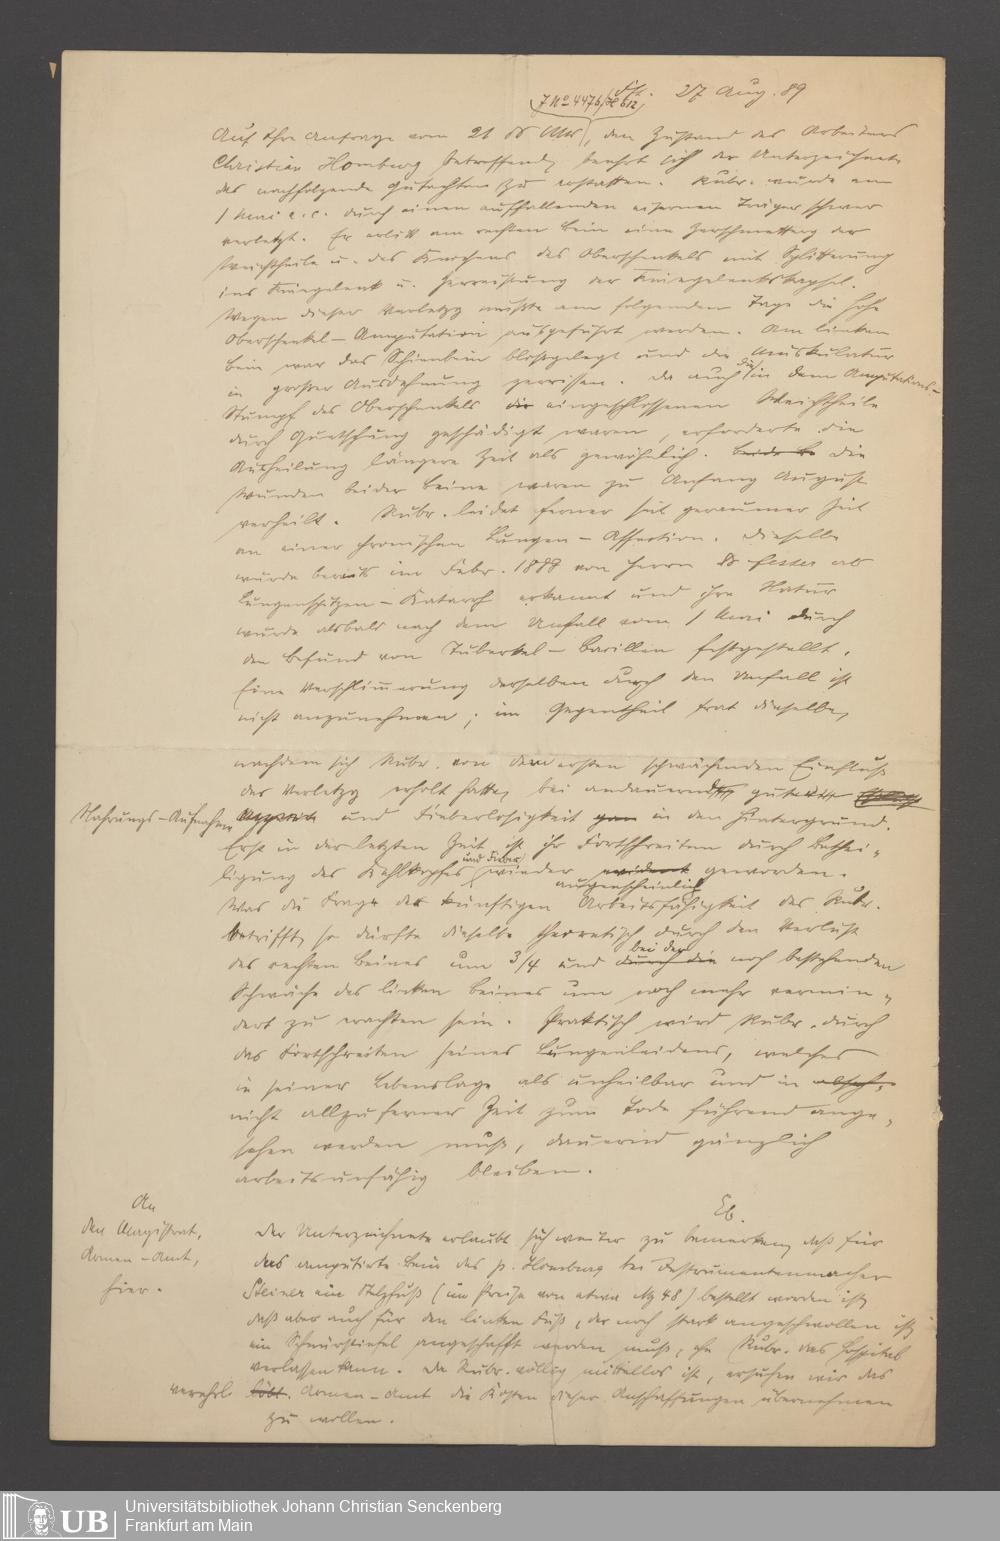 Ff. 27 Aug. 89
J No 4476/
Auf Ihre Anfrage vom 21 ds Mts, den Zustand des Arbeiters
Christian Homburg betreffend, beehrt sich der Unterzeichnete
das nachfolgende Gutachten zu erstatten. Rubr. wurde am
1 Mai a. c. durch einen auffallenden eisernen Träger schwer
verletzt. Er erlitt am rechten Bein eine Zerschmetterg der
Weichtheile u. des Knochens des Oberschenkels mit Splitterung
ins Kniegelenk u. Zerreißung der Kniegelenkskapsel.
Wegen dieser Verletzg mußte am folgenden Tage die hohe
Oberschenkel-Amputation ausgeführt werden. Am linken
Bein war das Schienbein blossgelegt und die Muskulatur
in großer Ausdehnung zerrissen. Da auch die in dem Amputations-
Stumpf des Oberschenkels die eingeschlossenen Weichtheile
durch Quetschung geschädigt waren, erforderte die
Ausheilung längere Zeit als gewöhnlich. Die
Wunden beider Beine waren zu Anfang August
verheilt. Rubr. leidet ferner seit geraumer Zeit
an einer chronischen Lungen-Affection. Dieselbe
wurde bereits im Febr. 1888 von Herrn Dr Fester als
Lungenspitzen-Katarrh erkannt und ihre Natur
wurde alsbald nach dem Unfall vom 1 Mai durch
den Befund von Tuberkel-Bacillen festgestellt.
Eine Verschlimmerung derselben durch den Unfall ist
nicht anzunehmen; im Gegentheil trat dieselbe,
nachdem sich Rubr. von dem ersten schwächenden Einfluß
der Verletzg erholt hatte, bei andauernd guter
Nahrungs-Aufnahme und Fieberlosigkeit in den Hintergrund.
Erst in der letzten Zeit ist ihr Fortschreiten durch Bethei-
ligung des Kehlkopfes und Fieber wieder augenscheinlich geworden.
Was die Frage der künftigen Arbeitsfähigkeit des Rubr.
betrifft, so dürfte dieselbe theoretisch durch den Verlust
des rechten Beines um 3/4 und bei der noch bestehenden
Schwäche des linken Beines um noch mehr vermin-
dert zu erachten sein. Praktisch wird Rubr. durch
das Fortschreiten seines Lungenleidens, welches
in seiner Lebenslage als unheilbar und in
nicht allzuferner Zeit zum Tode führend ange-
sehen werden muß, dauernd gänzlich
arbeitsunfähig bleiben.
Eb.
An
den Magistrat,
Armen-Amt,
hier.
Der Unterzeichnete erlaubt sich weiter zu bemerken, daß für
das amputirte Bein des p. Homburg bei Instrumentenmacher
Steiner ein Stelzfuß (im Preise von etwa M 48) bestellt worden ist,
daß aber auch für den linken Fuß, der noch stark angeschwollen ist,
ein Schnürstiefel angeschafft werden muß, ehe Rubr. das Hospital
verlassen kann. Da Rubr. völlig mittellos ist, ersuchen wir das
verehrl. Armen-Amt die Kosten dieser Anschaffungen übernehmen
zu wollen.
UB
Universitätsbibliothek Johann Christian Senckenberg
Frankfurt am Main